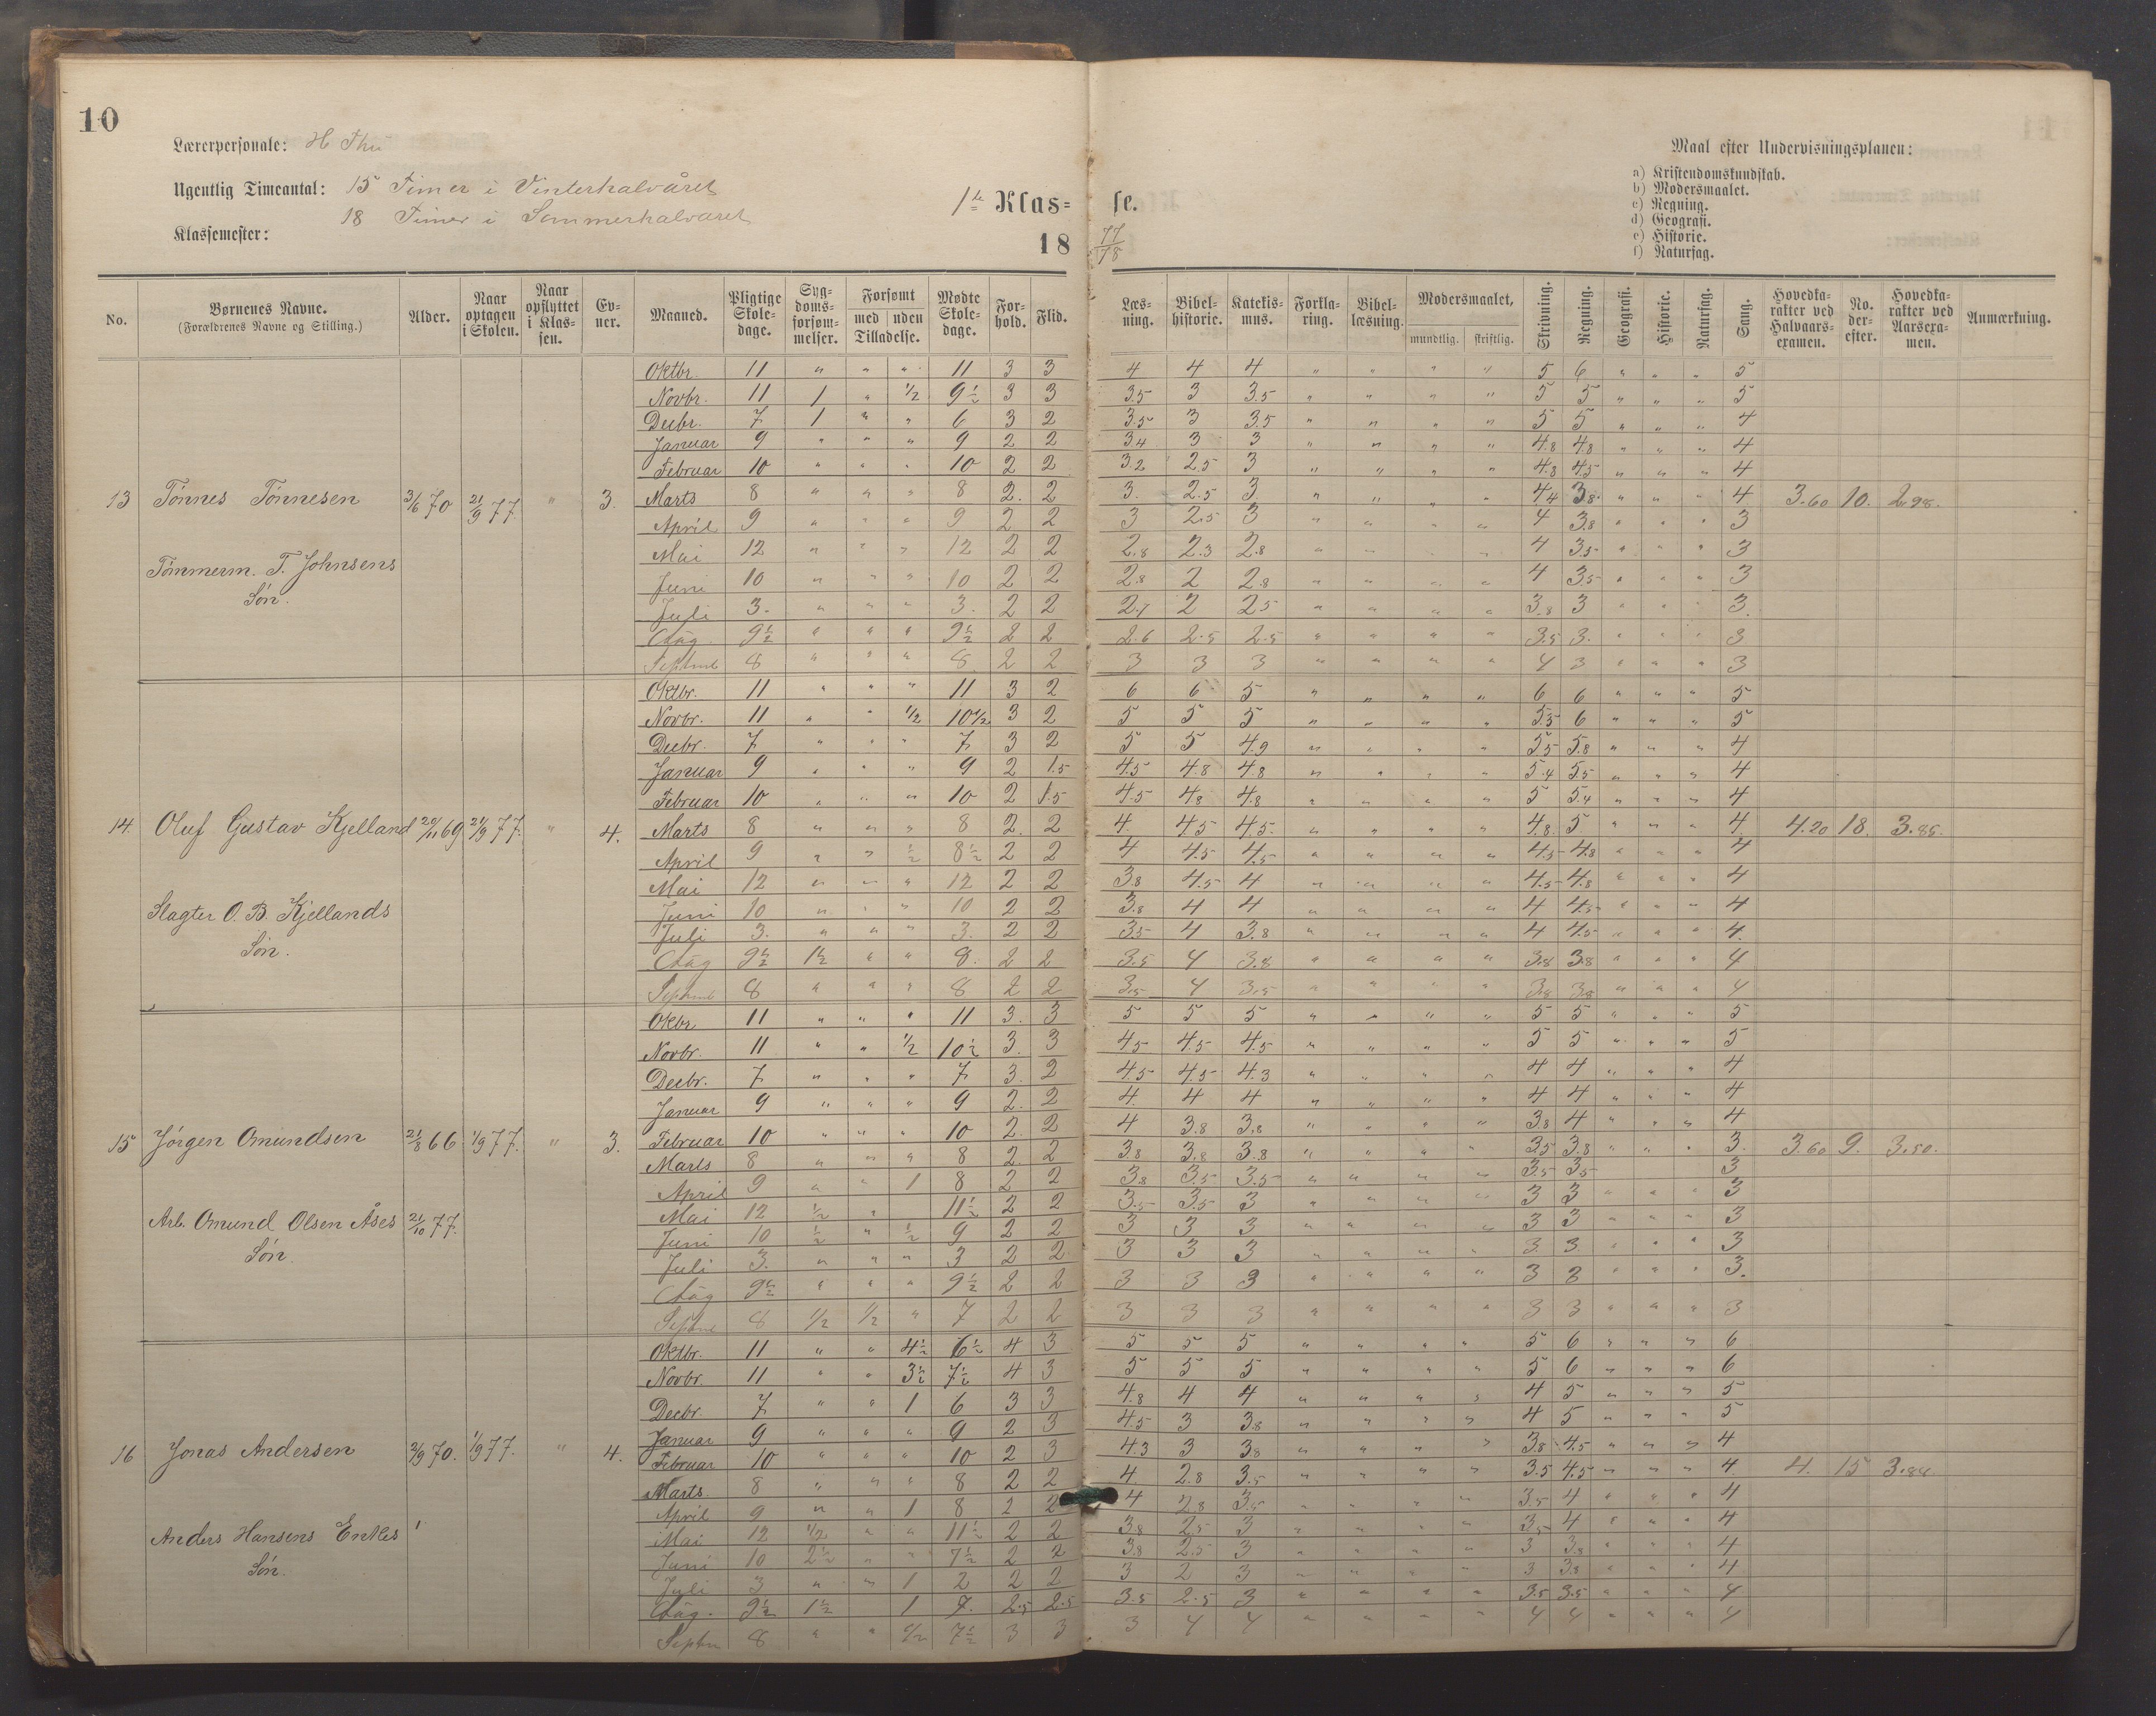 10
Lærerpersonale: H Thu
Ugentlig Timeantal: 15 Timer i Vinterhalvåret
18 Timer i Sommerhalvåret
Klassemester:
1ste Klas= se.
18 77/78
Maal efter Undervisningsplanen:
a) Kristendomskundskab.
b) Modersmaalet.
c) Regning.
d) Geografi.
e) Historie.
f) Naturfag.
No. Børnenes Navne. (Forældrenes Navne og Stilling.) Alder. Naar optagen i Skolen. Naar opflyttet i Klassen. Evner. Maaned. Pligtige Skoledage. Sygdomsforsømmelser. Forsømt med uden Tilladelse. Mødte Skoledage. Forhold. Flid. Læsning. Bibelhistorie. Katekismus. Forklaring. Bibellæsning. Modersmaalet, mundtlig. skriftlig. Skrivning. Regning. Geografi. Historie. Naturfag. Sang. Hovedkarakter ved Halvaarsexamen. No. derefter. Hovedkarakter ved Aarsexamen. Anmærkning.
Oktbr. 11 " " " 11 3 3 4 4 4 " " " " 5 6 " " " 5
Novbr. 11 1 " 1/2 9 1/2 3 3 3.5 3 3.5 " " " " 5 5 " " " 5
Decbr. 7 1 " " 6 3 2 3.5 3 3.5 " " " " 5 5 " " " 4
Januar 9 " " " 9 2 2 3.4 3 3 " " " " 4.8 4.8 " " " 4
Februar 10 " " " 10 2 2 3.2 2.5 3 " " " " 4.8 4.5 " " " 4
13 Tönnes Tönnesen 3/6 70 21/9 77. " 3. Marts 8 " " " 8 2. 2 3. 2.5 3. " " " " 4.4 3.8 " " " 4 3.60 10. 2.98.
April 9 " " " 9 2 2 3 2.5 3 " " " " 4 3.8 " " " 3
Mai 12 " " " 12 2 2 2.8 2.3 2.8 " " " " 4 3.5 " " " 3
Tömmerm. T. Johnsens
Juni 10 " " " 10 2 2 2.8 2 2.8 " " " " 4 3.5 " " " 3
Sön.
Juli 3. " " " 3. 2 2 2.7 2 2.5 " " " " 3.8 3 " " " 3.
Aug. 9 1/2 " " " 9 1/2 2 2 2.6 2.5 2.5 " " " " 3.5 3. " " " 3
Septmb 8 " " " 8 2 2 3 3 3 " " " " 4 3 " " " 3
Oktbr. 11 " " " 11 3 2 6 6 5 " " " " 6 6 " " " 5
Novbr. 11 " " 1/2 10 1/2 3 2 5 5 5 " " " " 5.5 6 " " " 5
Decbr. 7 " " " 7 3 2 5 5 4.9 " " " " 5.5 5.8 " " " 4
Januar 9 " " " 9 2 1.5 4.5 4.8 4.8 " " " " 5.4 5.5 " " " 4
Februar 10 " " " 10 2 1.5 4.5 4.8 4.8 " " " " 5 5.4 " " " 4
14. Oluf Gustav Kjelland 20/11 69 21/9 77. " 4. Marts 8 " " " 8 2. 2 4. 4.5 4.5 " " " " 4.8. 5 " " " 4. 4.20 18. 3.85.
April 9 " " 1/2 8 1/2 2 2 4 4.5 4.5 " " " " 4.5 4.8 " " " 4
Mai 12 " " " 12 2 2 3.8 4.5 4 " " " " 4.5 4.8 " " " 4
Slagter O. B. Kjellands
Juni 10 " " " 10 2 2 3.8 4 4 " " " " 4 4.5 " " " 4
Sön.
Juli 3. " " " 3. 2 2 3.5 4 3.8 " " " " 4 4.5 " " " 4.
Aug 9 1/2 1 1/2 " " 8. 2 2 3.5 4 3.8 " " " " 3.8 3.8 " " " 4
Septmb 8 " " " 8 2 2 3.5 4 3.5 " " " " 3.8 3.8 " " " 4
Oktbr 11 " " " 11 3. 3 5 5 5 " " " " 5 5 " " " 5
Novbr. 11 " " 1/2 10 1/2 3. 3 4.5 4.5 4.5 " " " " 5 5 " " " 5
Decbr. 7 " " " 7 3. 2 4.5 4.5 4.3 " " " " 4 4 " " " 4
Januar 9 " " " 9 2. 2 4. 4 4 " " " " 4 4 " " " 4
Februar 10 " " " 10 2. 2 4 3.8 3.8 " " " " 3.8 4 " " " 4
15 Jörgen Omundsen 21/8 66 1/9 77. " 3. Marts 8 " " " 8 2. 2 3.8 3.8 3.8 " " " " 3.5 3.8 " " " 3. 3.60 9. 3.50.
April 9 " " 1 8 2 2 3.8 3.5 3.5 " " " " 3.5 3.5 3
Mai 12 1/2 " 11 1/2 2 2 3.5 3.5 3 " " " " 3 3 " " " 3
Arb. Omund Olsen Åses 21/10 77.
Juni 10 1/2 " 1/2 9 2 2 3 3 3 " " " " 3 3 " " " 3
Sön.
Juli 3. " " " 3 2 2 3 3 3 " " " " 3. 3. " " " 3
Aug 9 1/2 " " " 9 1/2 2 2 3 3 3 " " " " 3 3 " " " 3.
Septmb 8 1/2 1/2 " 7 2 2 3 3 3 " " " " 3 3 " " " 3
Oktbr. 11 " " 4 1/2 6 1/2 4 3 5 5 5 " " " " 5 6 " " " 6
Novbr. 11 " " 3 1/2 7 1/2 4 3 5 5 5 " " " " 5 6 " " " 6
Decbr. 7 " " 1 6 3 3 4.8 4 4 " " " " 4 5 " " " 5
Januar 9 " " " 9 2 3 4.5 3 3.8 " " " " 4 5 " " " 5
16 Jonas Andersen 2/9 70. 1/9 77. " 4. Februar 10 " " " 10 2 3 4.3 3 3.8 " " " " 3.8 4.5 " " " 4
Marts. 8 " " " 8 2 2 4. 2.8 3.5 " " " " 3.5 4.5 " " " 4. 4. 15 3.84.
April 9 " " 1 8 2 2 4 2.8 3.5 " " " " 3.5 4 " " " 4
Anders Hansens Enkes
Mai 12 1/2 " " 11 1/2 2 2 3.8 2.5 3 " " " " 3.5 4 " " " 4
Sön.
Juni 10 2 1/2 " " 7 1/2 2 2 3.8 2.5 3 " " " " 3 3.8 " " " 4
Juli 3 " " 1 2 2 2 3 2 3 " " " " 3 3.8 " " " 4
Aug. 9 1/2 1 1/2 1 7. 2.5 2.5 3.5 2.5 3 " " " " 3.5 3.5 " " " 4
Septbr 8 " " 1/2 7 1/2 3 3 3 4 4 " " " " 4 4 " " " 4